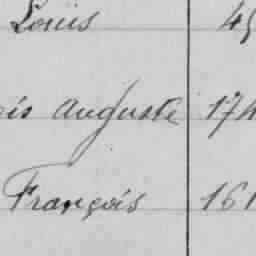 Louis 45
ois Auguste 174
François 161